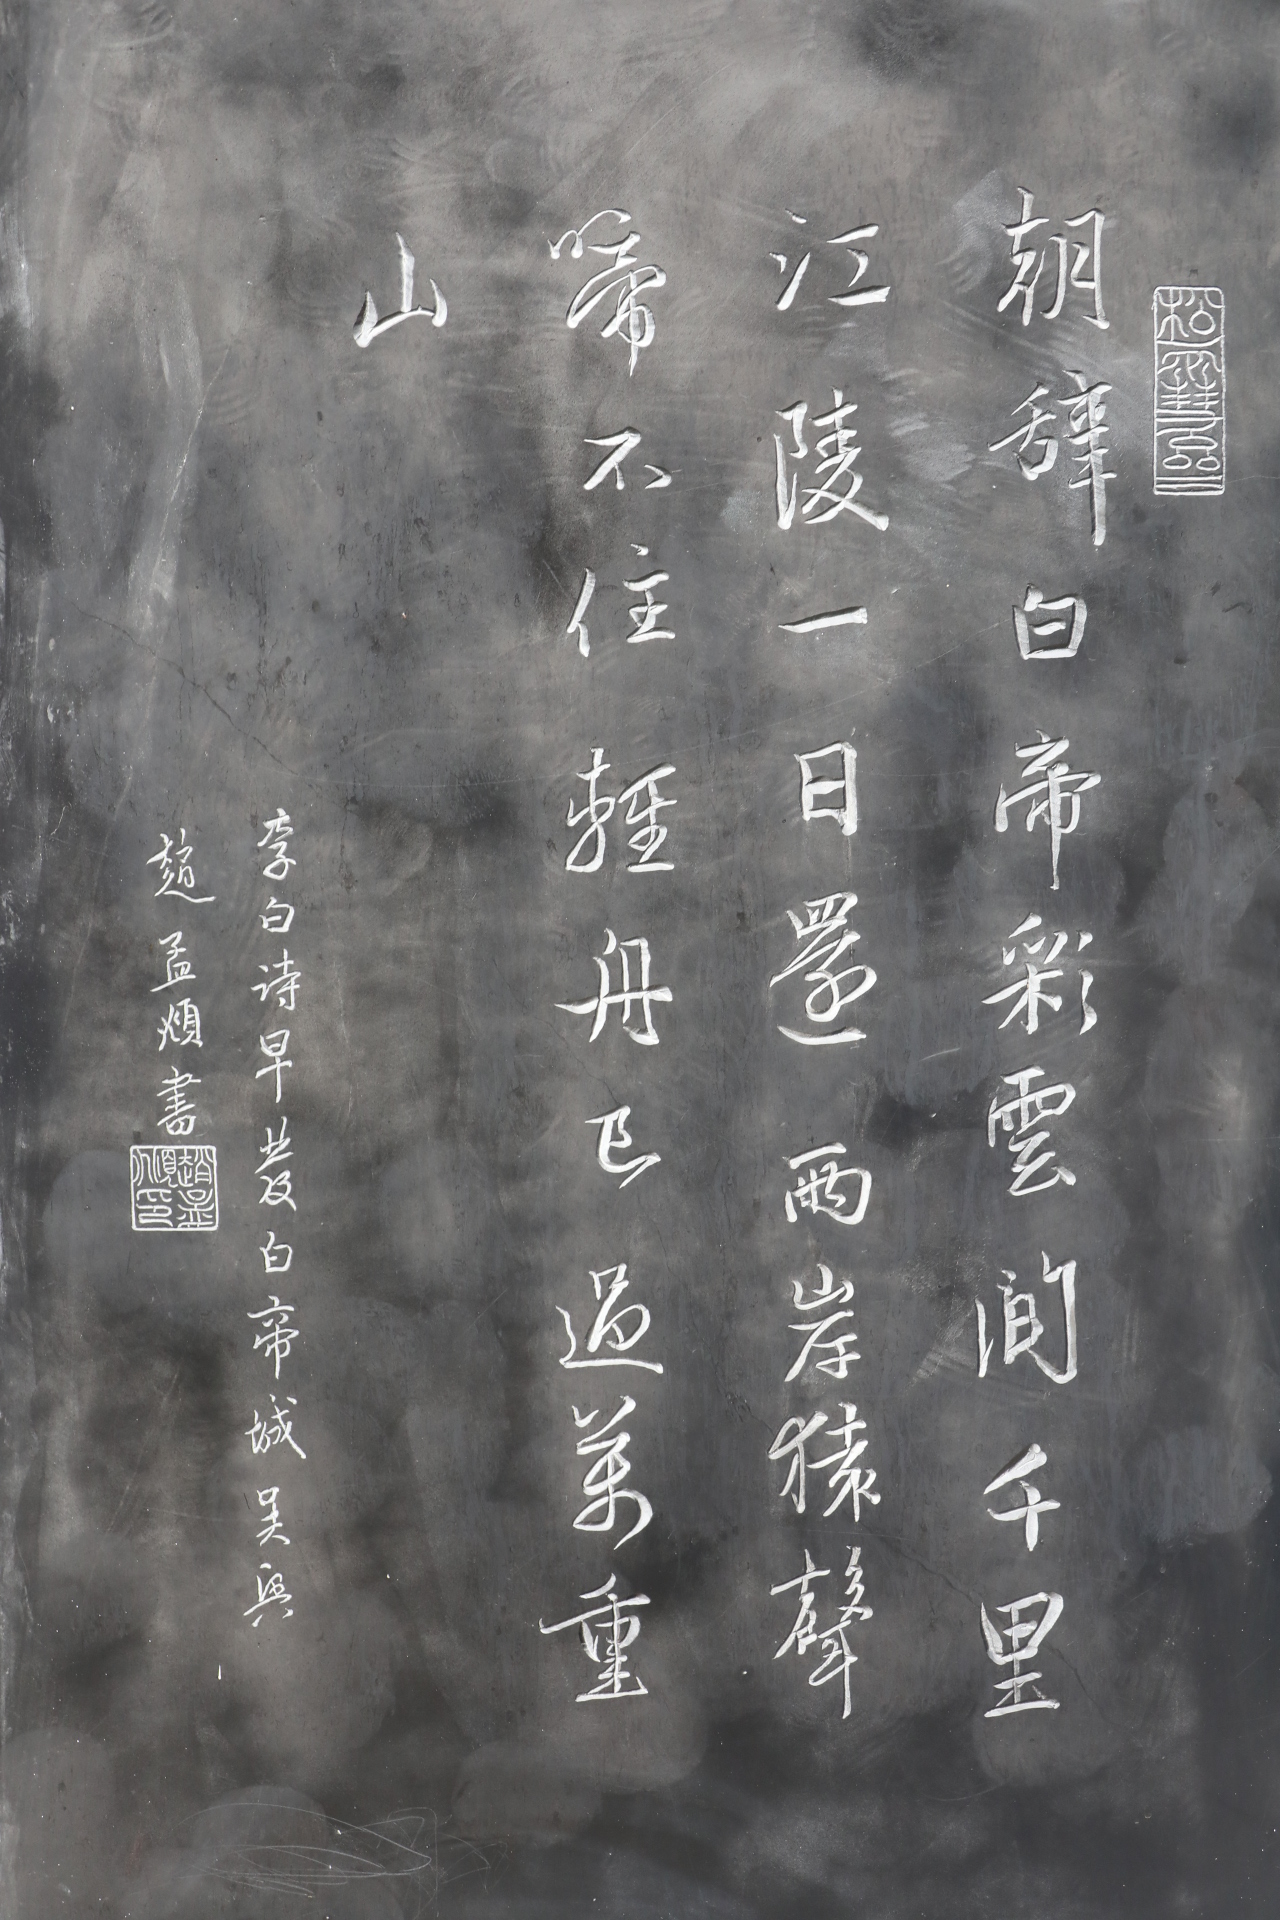 朝辞白帝彩雲間千里
江陵一日還兩岸猿聲
啼不住輕舟已過萬重
山
李白诗早發白帝城吴興
趙孟頫書
趙孟頫印